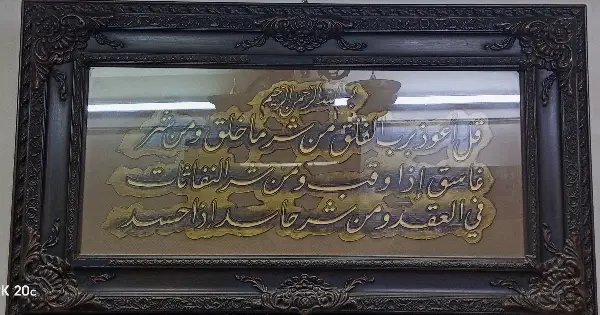 بسم الله الرحمن الرحيم
قل اعوذ برب الفلق من شر ما خلق ومن شر
غاسق إذا وقب ومن شر النفاثات
في العقد ومن شر حاسد اذا حسد
K 20c